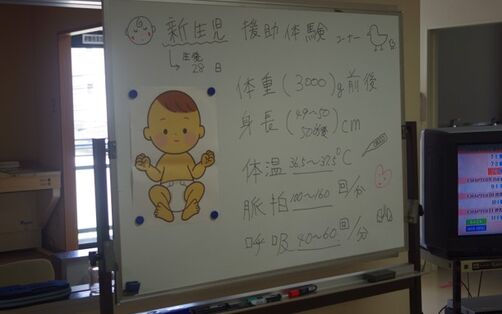 新生児 援助体験 コーナー
↳生後28日
体重(3000)g前後
身長(49~50 50前後)cm
体温 36.5~37.5℃
脈拍 100~160 回/分
呼吸 40~60 回/分